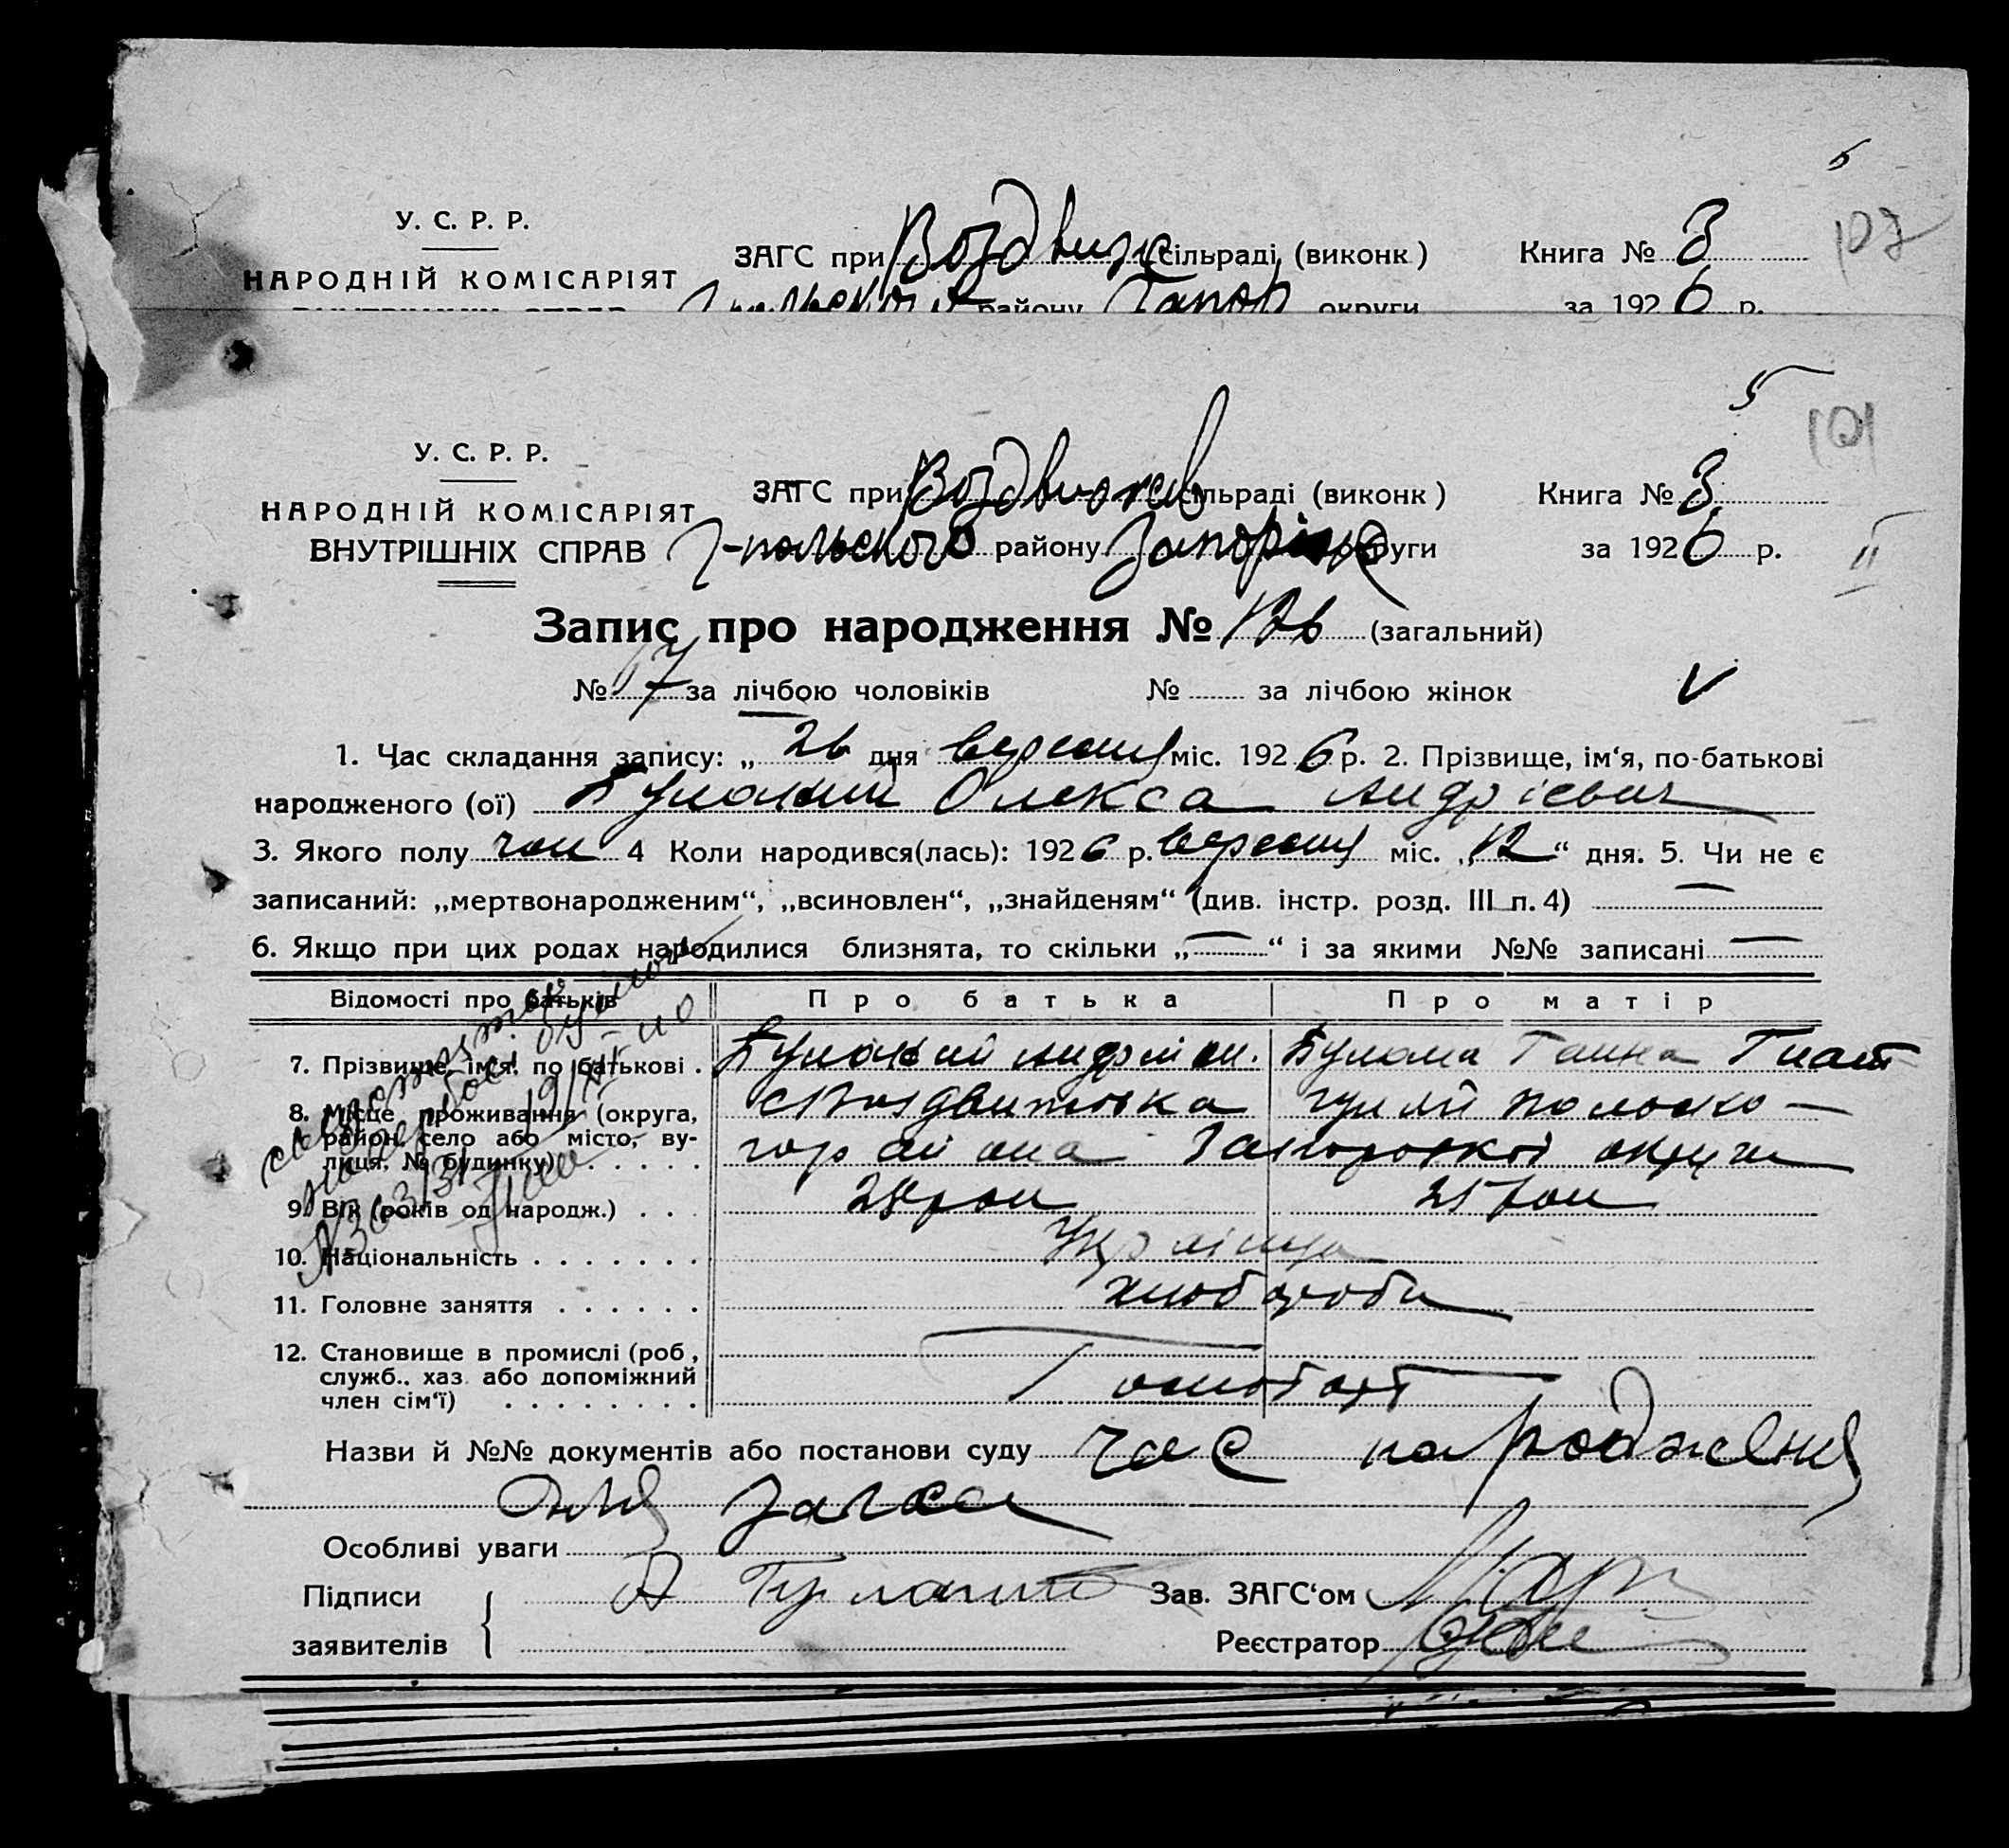 У. С. Р. Р.
ЗАГС при Воздвиж сільраді (виконк) Книга № 3 107
НАРОДНІЙ КОМІСАРІЯТ
району Запор округи за 1926 р.
5 101
У. С. Р. Р.
ЗАГС при Воздвижев сільраді (виконк) Книга № 3
НАРОДНІЙ КОМІСАРІЯТ
ВНУТРІШНІХ СПРАВ Г-польского району Запоріж округи за 1926 р. II
Запис про народження № 126 (загальний)
№ 17 за лічбою чоловіків № за лічбою жінок V
1. Час складання запису: „ 26 дня вересня міс. 1926 р. 2. Прізвище, ім‘я, по-батькові
народженого (ої) Олекса Андрієвич
3. Якого полу чол 4 Коли народився(лась): 1926 р. вересня міс. „ 12 “ дня. 5. Чи не є
записаний: „мертвонародженим“, „всиновлен“, „знайденям“ (див. інстр. розд. III п. 4) —
6. Якщо при цих родах народилися близнята, то скільки „ — “ і за якими №№ записані —
Відомості про батьків Про батька Про матір
7. Прізвище, ім‘я, по батькові . Ганна Гнат
8. Місце проживання (округа, с Воздвижівка гуляй польсько —
район, село або місто, ву-
лиця, № будинку) . . . . . го района Запорожкої округи
9. Вік (років од народж.) . . . 28 рок 25 рок
10. Національність . . . . . . . Українця
11. Головне заняття . . . . . . хлібороби
12. Становище в промислі (роб,
служб., хаз. або допоміжний
член сім‘ї) . . . . . . . .
Назви й №№ документів або постанови суду час народженя
для загса
Особливі уваги
Підписи
заявителів
Зав. ЗАГС‘ом
Реєстратор